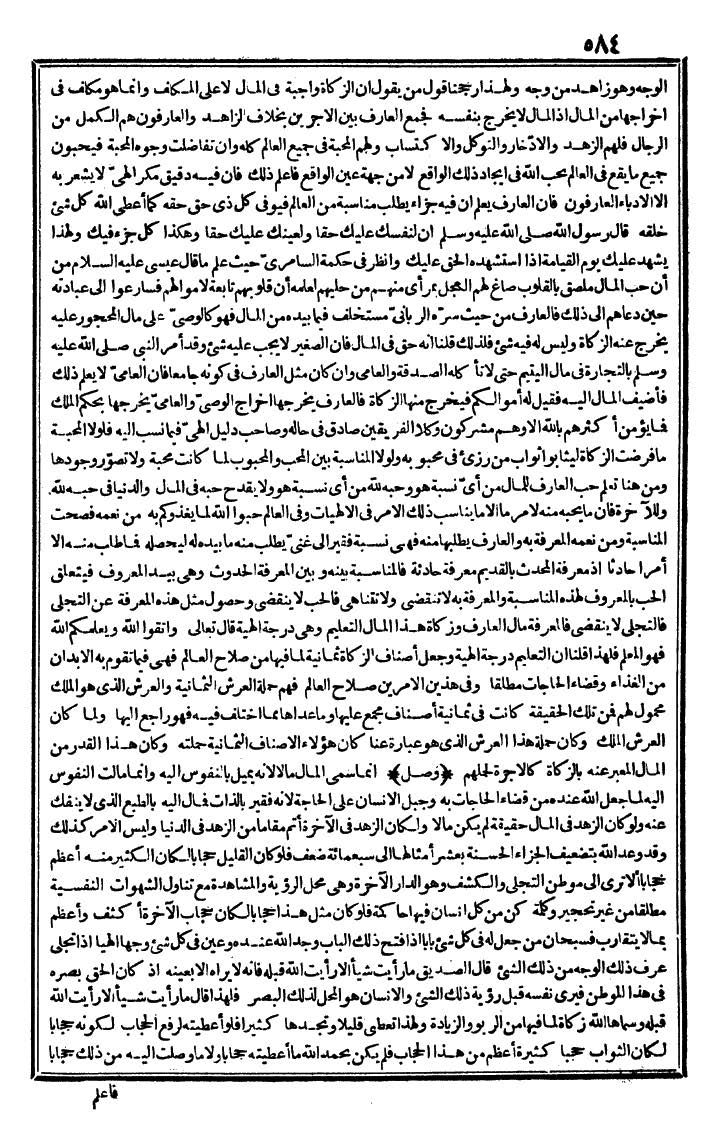 ٥٨٤
الوجه وهو زاهد من وجه ولهذا رجحنا قول من يقول ان الزكاة واجبة فى المال لا على المكلف وانما هو مكلف فى
اخراجها من المال اذ المال لا يخرج بنفسه فجمع العارف بين الاجرين بخلاف الزاهد والعارفون هم الكمل من
الرجال فلهم الزهد والادّخار والتوكل والاكتساب ولهم المحبة فى جميع العالم كله وان تفاضلت وجوه المحبة فيحبون
جميع ما يقع فى العالم بحب الله فى ايجاد ذلك الواقع لا من جهة عين الواقع فاعلم ذلك فان فيه دقيق مكر الهىّ لا يشعر به
الا الادباء العارفون فان العارف يعلم ان فيه جزاء يطلب مناسبة من العالم فيوفى كل ذى حق حقه كما أعطى الله كل شئ
خلقه قال رسول الله صلى الله عليه وسلم ان لنفسك عليك حقا ولعينك عليك حقا وهكذا كل جزء فيك ولهذا
يشهد عليك يوم القيامة اذا استشهده الحق عليك وانظر فى حكمة السامرىّ حيث علم ما قال عيسى عليه السلام من
أن حب المال ملصق بالقلوب صاغ لهم العجل بمرأى منهم من حليهم لعلمه أن قلوبهم تابعة لاموالهم فسارعوا الى عبادته
حين دعاهم الى ذلك فالعارف من حيث سرّه الربانىّ مستخلف فيما بيده من المال فهو كالوصىّ على مال المحجور عليه
يخرج عنه الزكاة وليس له فيه شئ فلذلك قلنا انه حق فى المال فان الصغير لا يجب عليه شئ وقد أمر النبى صلى الله عليه
وسلم بالتجارة فى مال اليتيم حتى لا تأكله الصدقة والعامى وان كان مثل العارف فى كونه جامعا فان العامىّ لا يعلم ذلك
فأضيف المال اليه فقيل له أموالكم فيخرج منها الزكاة فالعارف يخرجها اخراج الوصىّ والعامىّ يخرجها بحكم الملك
فما يؤمن أكثرهم بالله الا وهم مشركون وكلا الفريقين صادق فى حاله وصاحب دليل الهىّ فيما نسب اليه فلولا المحبة
ما فرضت الزكاة ليثابوا ثواب من رزئ فى محبوبه ولولا المناسبة بين المحب والمحبوب لما كانت محبة ولا تصوّر وجودها
ومن هنا تعلم حب العارف للمال من أىّ نسبة هو وحبه لله من أى نسبة هو ولا يقدح حبه فى المال والدنيا فى حبه لله
وللآخرة فان ما يحبه منه لامر ما الا ما يناسب ذلك الامر فى الالهيات وفى العالم حبوا الله لما يغذوكم به من نعمه فصحت
المناسبة ومن نعمه المعرفة به والعارف يطلبها منه فهى نسبة فقير الى غنىّ يطلب منه ما بيده له ليحصله فما طلب منه الا
أمرا حادثا اذ معرفة المحدث بالقديم معرفة حادثة فالمناسبة بينه وبين المعرفة الحدوث وهى بيد المعروف فيتعلق
الحب بالمعروف لهذه المناسبة والمعرفة به لا تنقضى ولا تتناهى فالحب لا ينقضى وحصول مثل هذه المعرفة عن التجلى
فالتجلى لا ينقضى فالمعرفة مال العارف وزكاة هذا المال التعليم وهى درجة الهية قال تعالى واتقوا الله ويعلمكم الله
فهو المعلم فلهذا قلنا ان التعليم درجة الهية وجعل أصناف الزكاة ثمانية لما فيها من صلاح العالم فهى فيما تقوم به الابدان
من الغذاء وقضاء الحاجات مطلقا وفى هذين الامرين صلاح العالم فهم حملة العرش الثمانية والعرش الذى هو الملك
محمول لهم فمن تلك الحقيقة كانت فى ثمانية أصناف مجمع عليها وما عداها مما اختلف فيه فهو راجع اليها ولما كان
العرش الملك وكان حملة هذا العرش الذى هو عبارة عنا كان هؤلاء الاصناف الثمانية حملته وكان هذا القدر من
المال المعبر عنه بالزكاة كالاجرة لحملهم ﴿وصل﴾ انما سمى المال مالا لانه يميل بالنفوس اليه وانما مالت النفوس
اليه لما جعل الله عنده من قضاء الحاجات به وجبل الانسان على الحاجة لانه فقير بالذات فمال اليه بالطبع الذى لا ينفك
عنه ولو كان الزهد فى المال حقيقة لم يكن مالا ولكان الزهد فى الآخرة أتم مقاما من الزهد فى الدنيا وليس الامر كذلك
وقد وعد الله بتضعيف الجزاء الحسنة بعشر أمثالها الى سبعمائة ضعف فلو كان القليل حجابا لكان الكثير منه أعظم
حجابا ألا ترى الى موطن التجلى والكشف وهو الدار الآخرة وهى محل الرؤية والمشاهدة مع تناول الشهوات النفسية
مطلقا من غير تحجير وكلمة كن من كل انسان فيها حاكمة فلو كان مثل هذا حجابا لكان حجاب الآخرة أكثف وأعظم
بما لا يتقارب فسبحان من جعل له فى كل شئ بابا اذا فتح ذلك الباب وجد الله عنده وعين فى كل شئ وجها الهيا اذا تجلى
عرف ذلك الوجه من ذلك الشئ قال الصديق ما رأيت شيأ الا رأيت الله قبله فانه لا يراه الا بعينه اذ كان الحق بصره
فى هذا الموطن فيرى نفسه قبل رؤية ذلك الشئ والانسان هو المحل لذلك البصر فلهذا قال ما رأيت شيأ الا رأيت الله
قبله وسماها الله زكاة لما فيها من الربو والزيادة ولهذا تعطى قليلا وتجدها كثيرا فلو أعطيته لرفع الحجاب لكونه حجابا
لكان الثواب حجبا كثيرة أعظم من هذا الحجاب فلم يكن بحمد الله ما أعطيته حجابا ولا ما وصلت اليه من ذلك حجابا
فاعلم